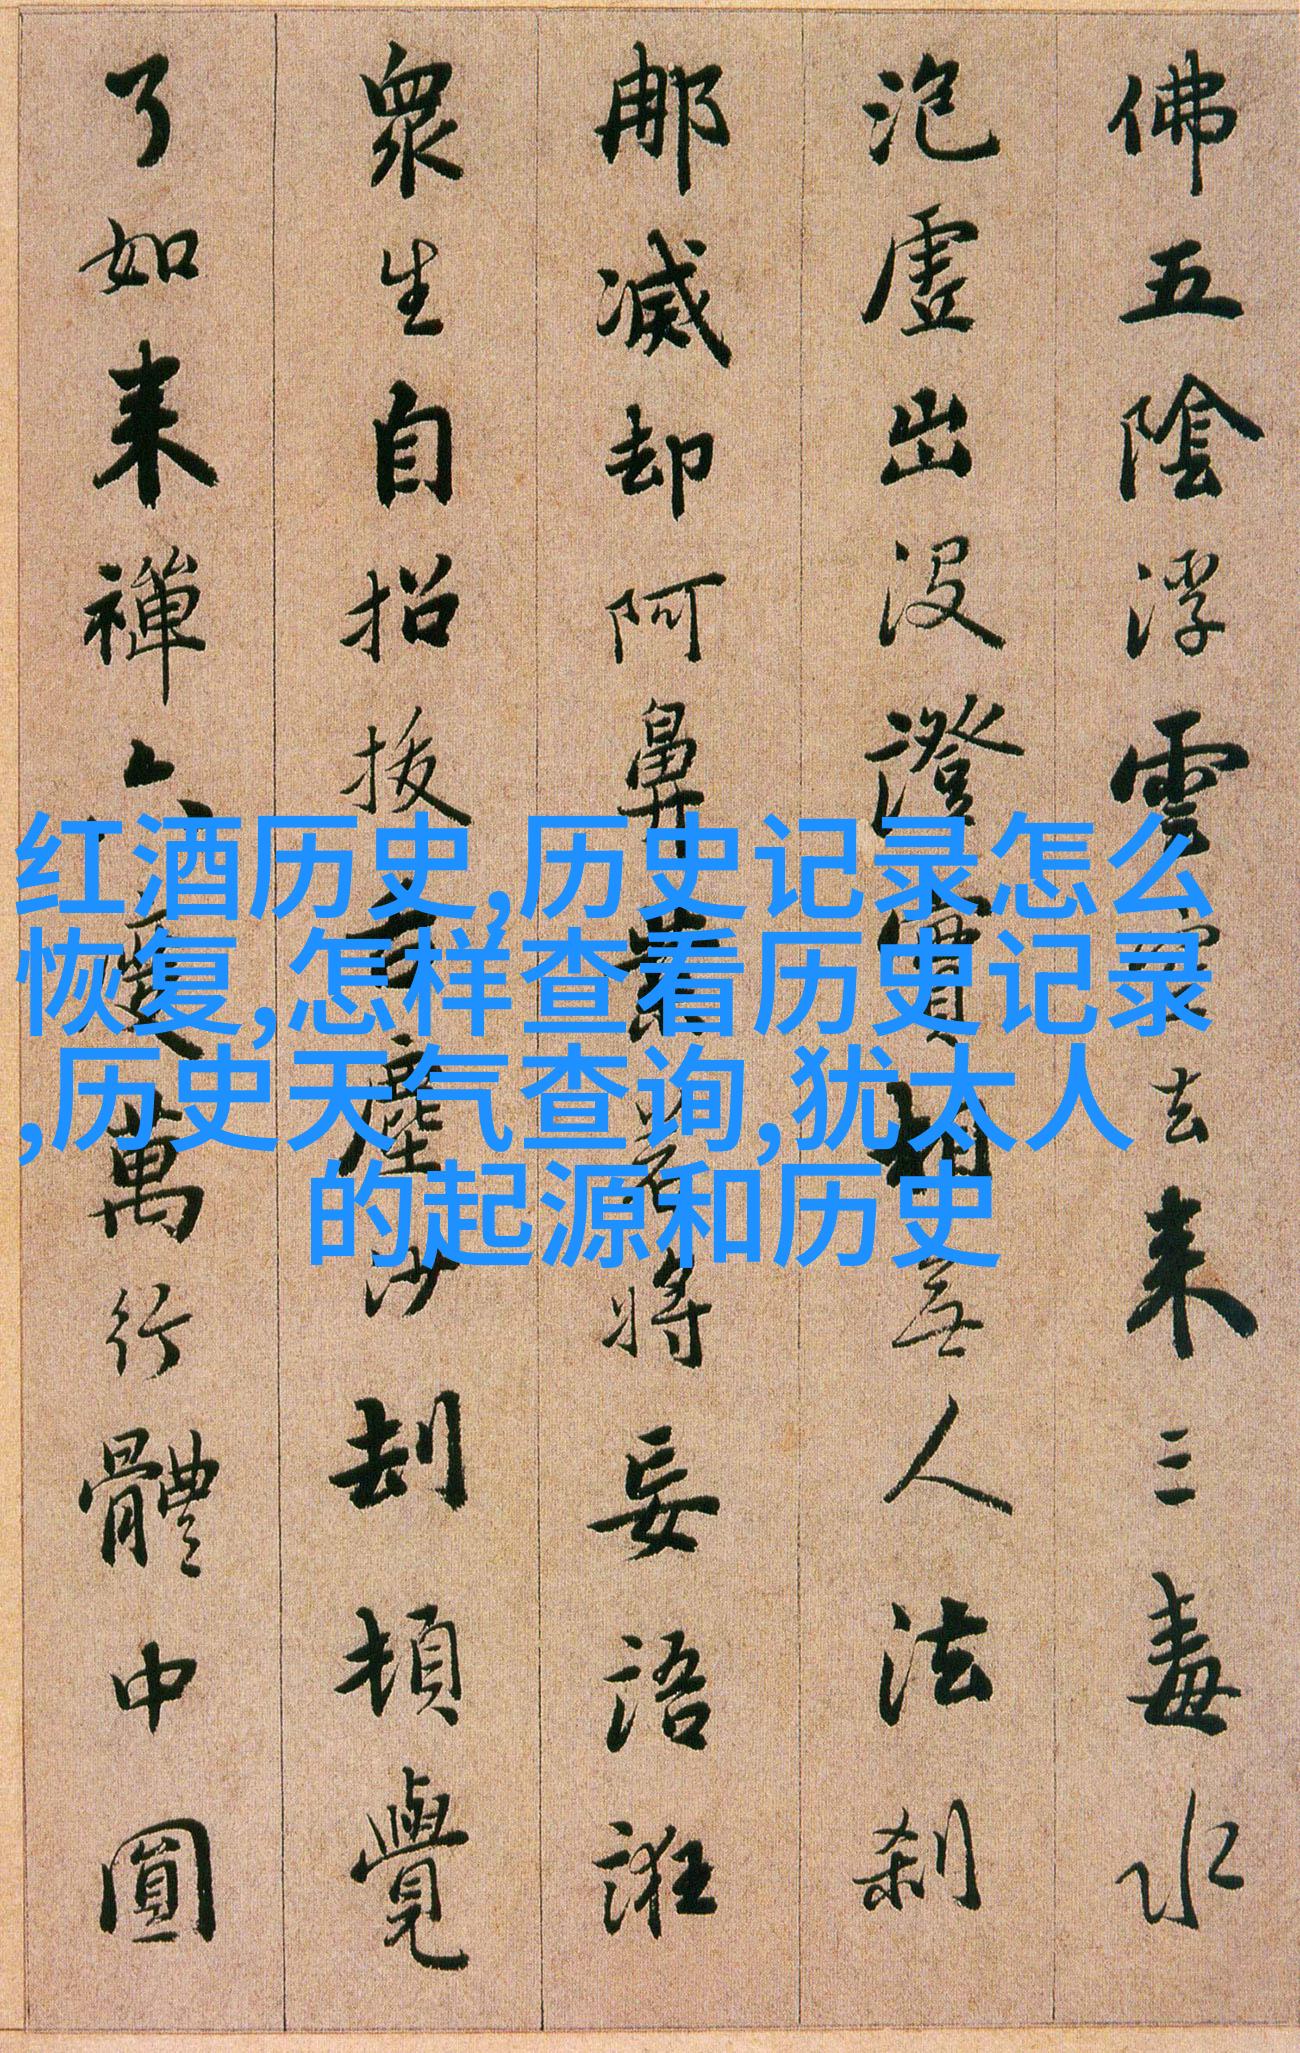 佛五陰浮雲空去来三毒水
泡虛出没證實相無人法刹
那滅却阿鼻業若將妄語誑
眾生自招拔舌塵沙劫頓覺
了如来禪六度萬行體中圓
红酒历史,历史记录怎么
恢复,怎样查看历史记录
,历史天气查询,犹太人
的起源和历史